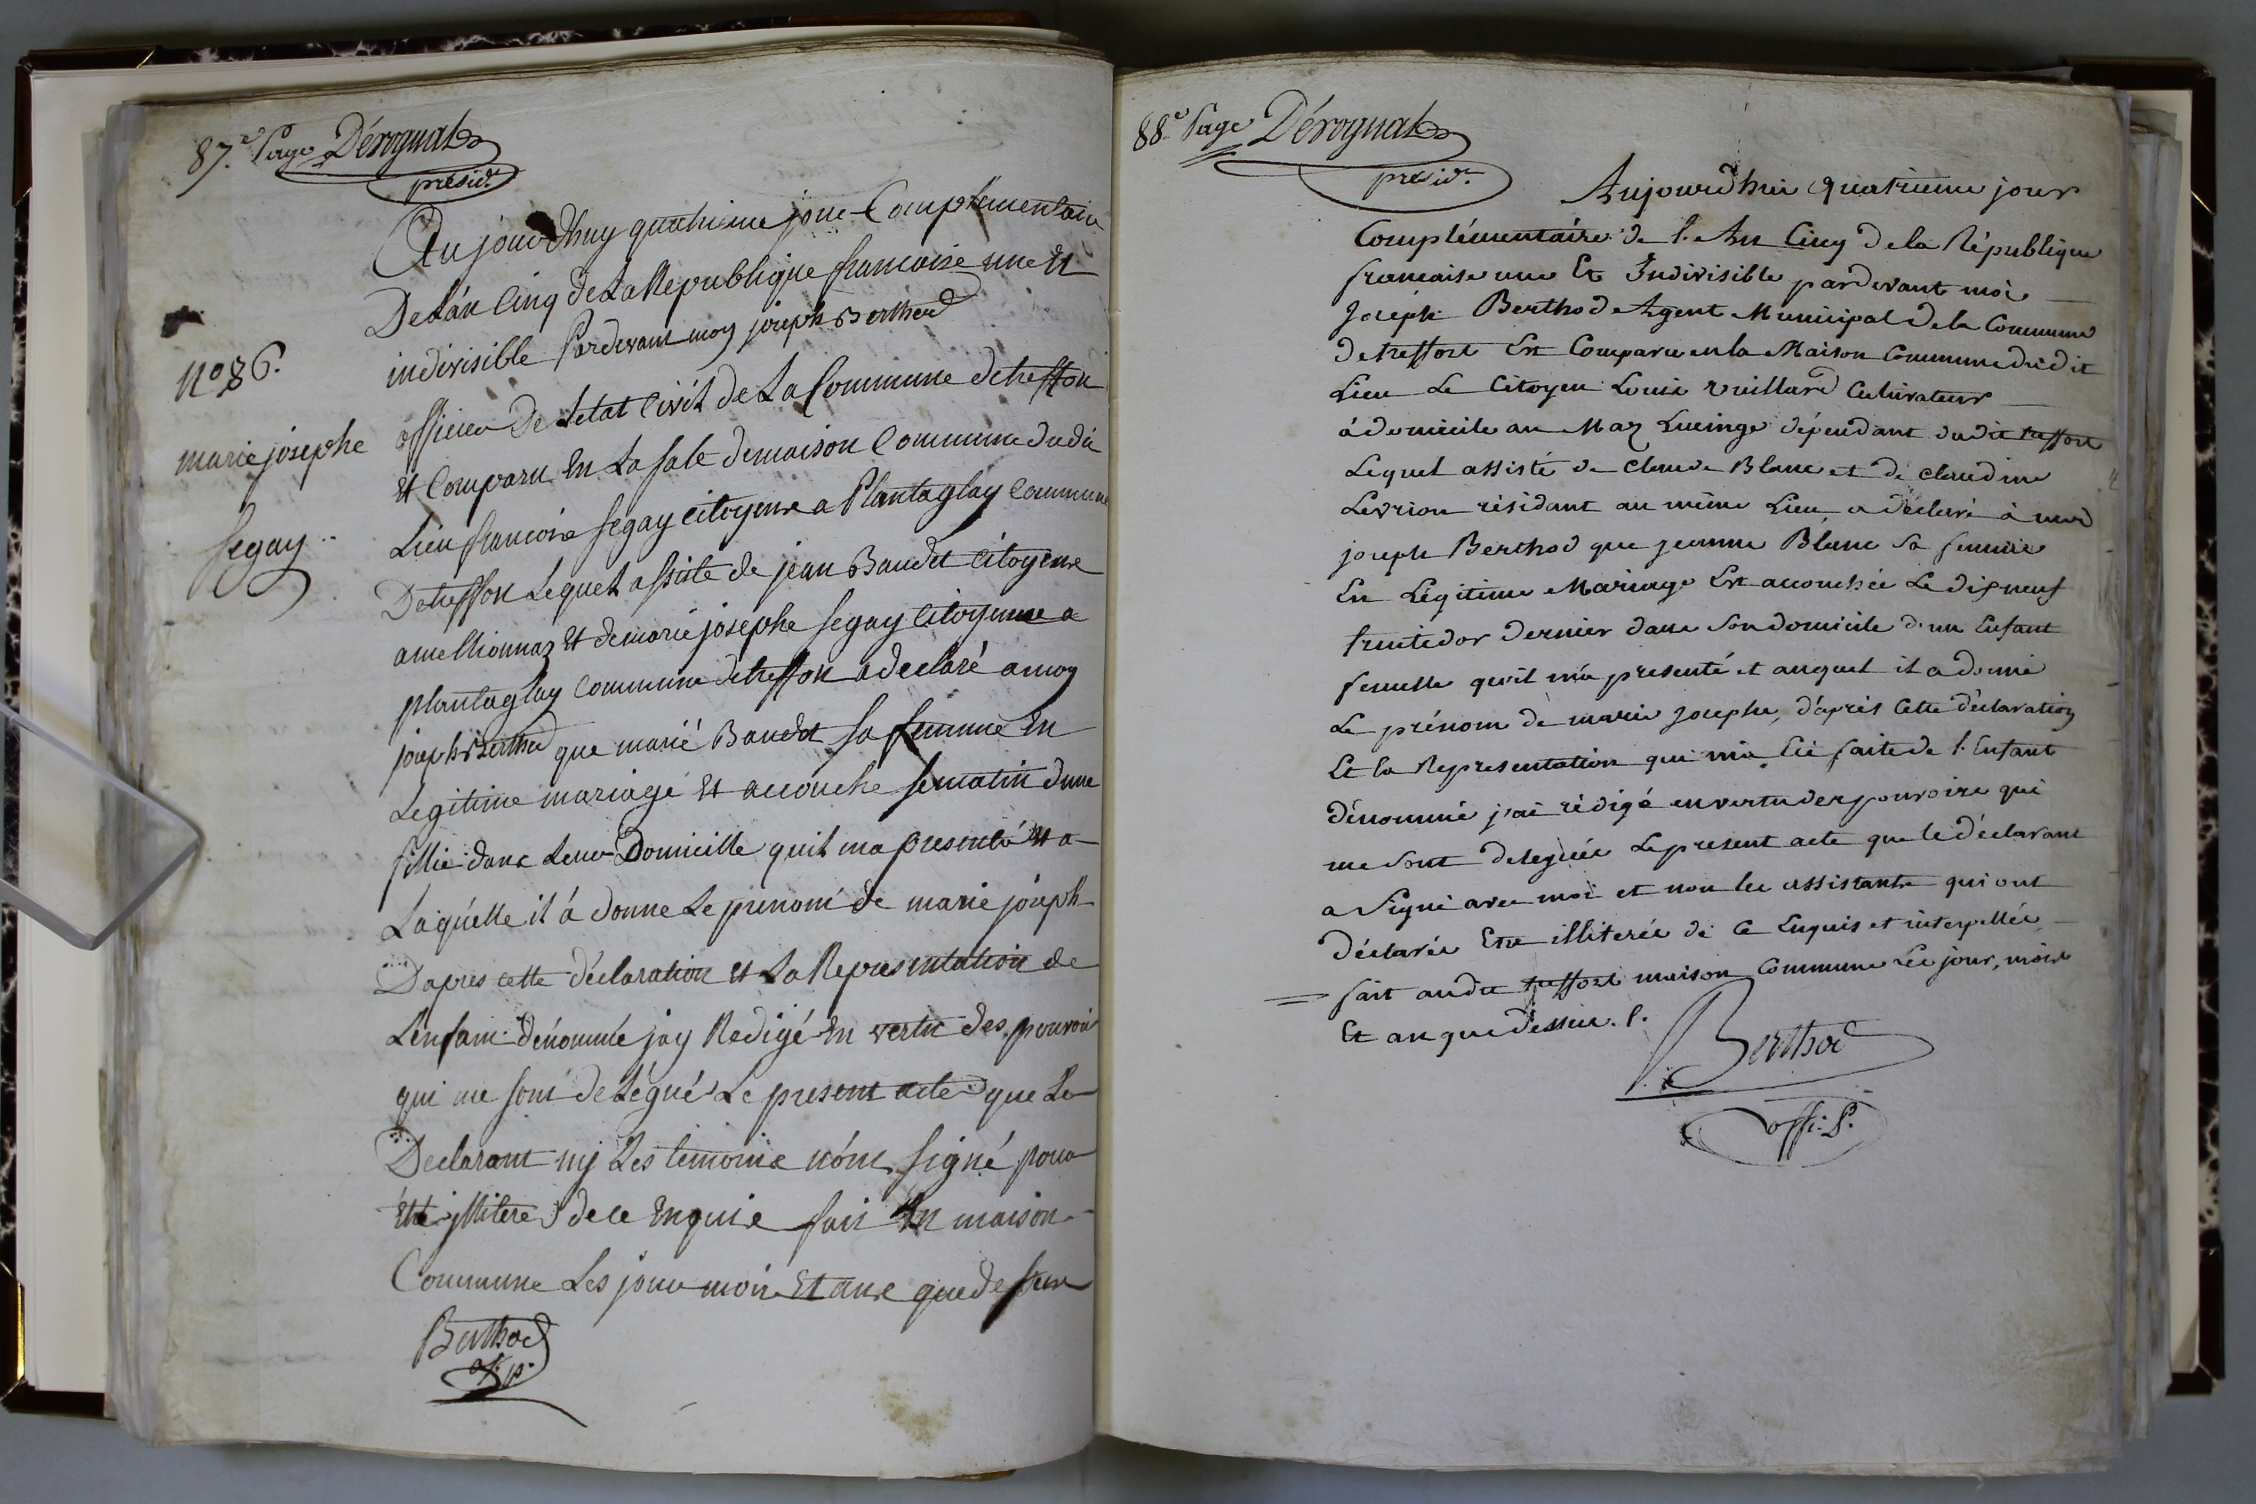 87.e Page Dérognat
présid.t
Aujourdhuy quatrieme jour Complementaire
De Lán Cinq de La Republique francoise une Et
indivisible Pardevant moy joseph Berthod
officier De Letat Civil de La Commune de treffort
Et Comparu En La sale de maison Commune dudit
Lieu francois segay citoyens a Plantaglay Commune
De treffort Lequel assiste de jean Baudet citoyens
a mellionnaz Et de marie josephe segay Citoyenne a
plantaglay Commune de treffort a declaré a moy
joseph Berthod que marié Baudet sa femme En
Legitime mariage Et accouche se matin dune
fillie dans Leur Domicille quil ma presenté Et a
Laquelle il á donne Le prenom de marie joseph
Dapres cette déclaration Et La Representation de
Lenfant dénommé jay Redigé En vertu des pouvoir
qui me sont delégué Le present acte que Le
Declarant ny Les temoins nónt signé pour
Etre jlliteres de ce Enquis fait En maison
Commune Les jour mois Et ans que dessus
Berthod
of. p.
No 86.
marie josephe
segay
88.e Page Dérognat
présid.t
Aujourd'hui quatrieme jour
Complémentaire de l'An Cinq de la République
francaise une Et Indivisible pardevant moi
Joseph Berthod Agent Municipal de la Commune
de treffort Est Comparu en la Maison Commune dudit
Lieu Le Citoyen Louis vuillard Cultivateur
à domicile au Maz Lucinge dépendant dudit treffort
Lequel assisté de Claude Blanc et de claudine
Levrion résidant au même Lieu, a déclaré à moi
joseph Berthod que jeanne Blanc sa femme
En Légitime Mariage Est accouchée Le dixneuf
fructidor Dernier dans Son domicile d'un Enfant
femelle qu'il m'a présenté et auquel il a donné
Le prénom de marie Josephe, d'après Cette déclaration
Et la Representation qui m'a Eté faite de l'Enfant
dénommé j'ai rédigé en vertu des pouvoirs qui
me sont delegués Le present acte que le déclarant
a Signé avec moi et non les assistants qui ont
déclarés Etre illiterés de Ce Enquis et interpellés
fait audit treffort maison Commune Les jour, mois
Et an que dessus. l.
Berthod
offi. P.